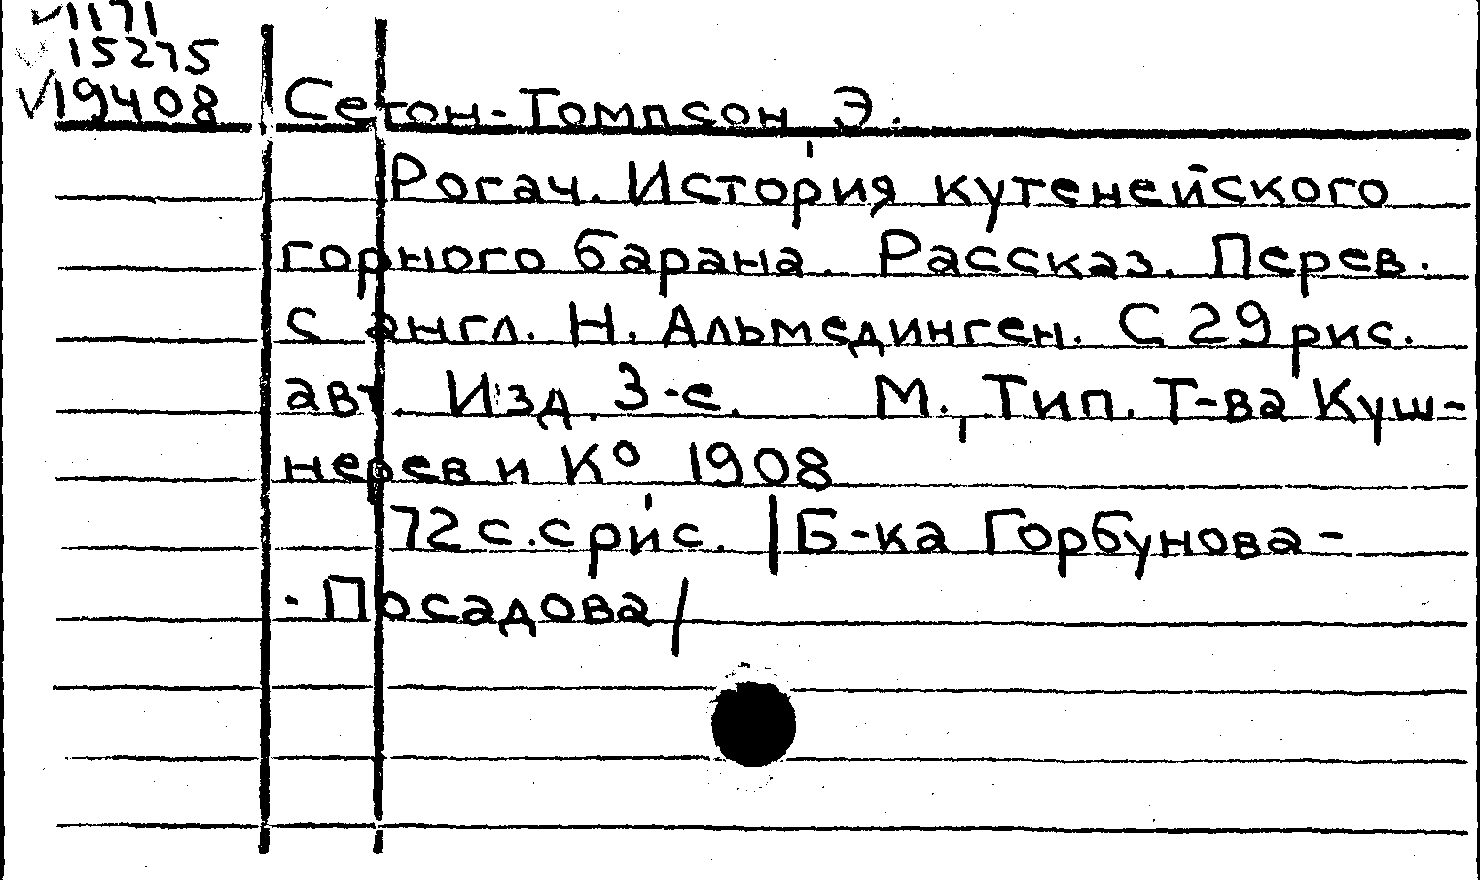 1171
15275
19408 Сетон-Томпсон Э.
Рогач. История кутенейского
горного барана. Рассказ. Перев.
с англ. Н. Альмединген. С 29 рис.
авт. Изд. 3-е. М. Тип. Т-ва Куш-
нерев и К° 1908
72 с. с рис. |Б-ка Горбунова-
-Посадова/